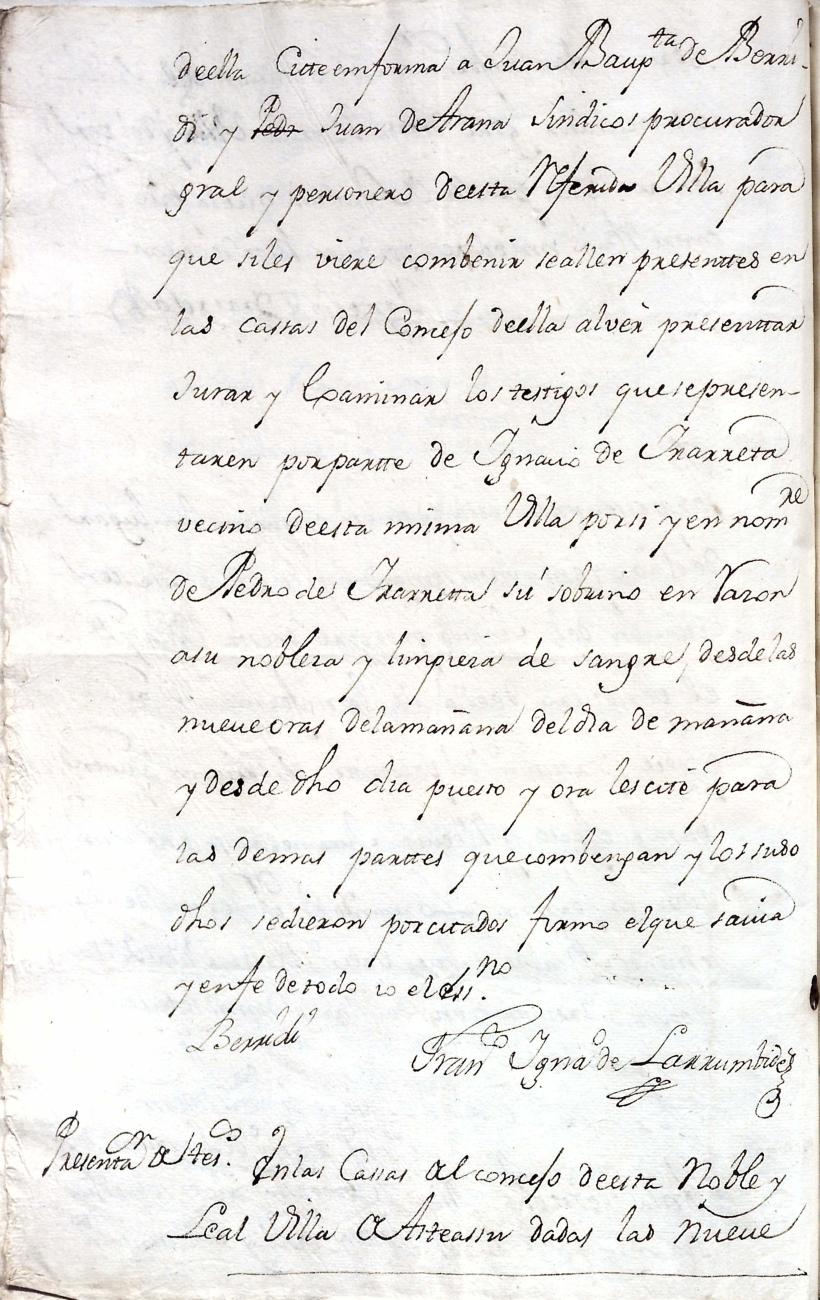 deella Citteenforma a Juan Baup^ta de Berri-
di y Pedr Juan de Arana Sindicos procurador
gral y personero deesta Rferida Villa para
que siles viere combenir seallen presenttes en
las cassas del Concejo deella alver presenttar
Jurar y Examinar los testigos quesepresen-
taren porpartte de Ignacio de Ynarreta
vecino deesta misma Villa porsi y en nom^re
de Pedro de Ynarretta su sobrino en Razon
asu nobleza y limpieza de sangre, desdelas
nueve oras delamañana del dia de mañana
y desde dho dia puesto y ora lescite para
las demas parttes quecombengan y los suso
dhos sedieron porcitados firmo elque savia
y enfe detodo io el ess.^no
Berridi
Fran^co Igna^o de Larrumbide
Presenta^n de tes^os. En las Cassas del concejo deesta Noble y
Leal Villa de Asteassu dadas las Nueve